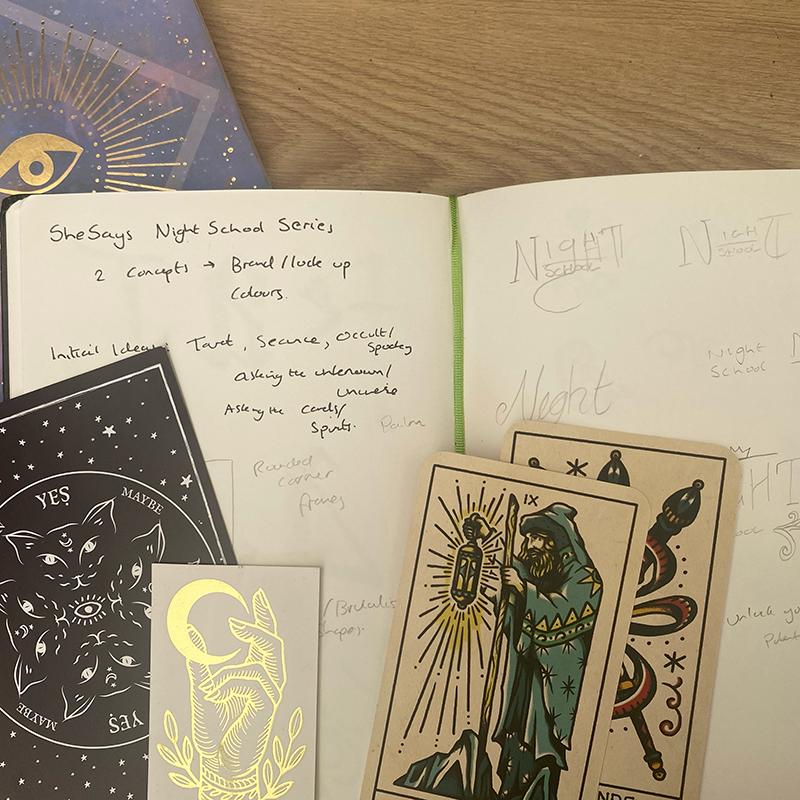 SheSays Night School Series
2 Concepts → Brand/lock up
Colours.
Initial Ideas: Tarot, Seance, Occult/
Spooky
asking the unknown/
universe
Asking the cards/
Spirits. Palm
Rounded
corner
frames
/Brutalist
shapes.
NIGHT
SCHOOL
NIGHT
SCHOOL
Night
School
Night
GHT
unlock yo
Potent
YES
MAYBE
MAYBE
YES
IX
NDS